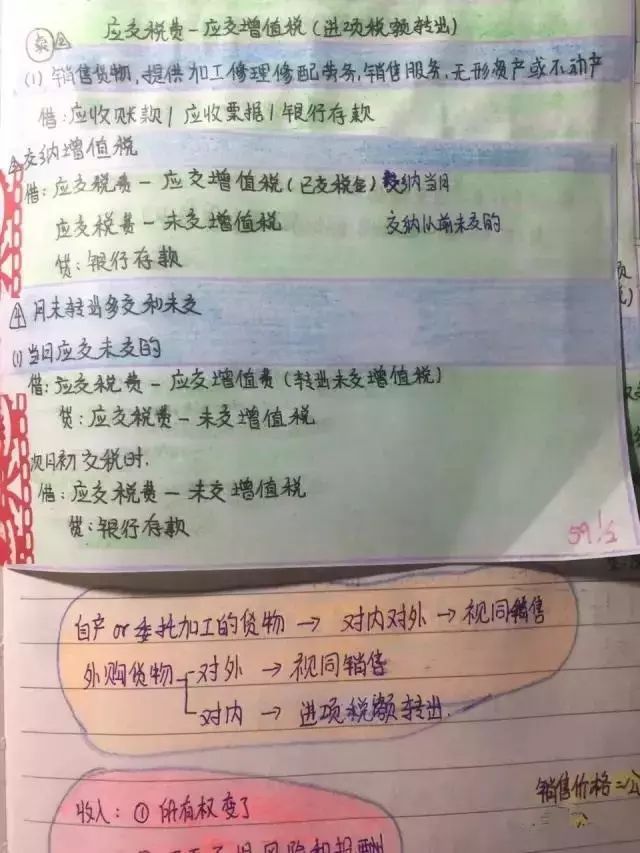 应交税费-应交增值税(进项税额转出)
卖
(1) 销售货物,提供加工修理修配劳务,销售服务,无形资产或不动产
借:应收账款/应收票据/银行存款
交纳增值税
借:应交税费-应交增值税(已交税金) 交纳当月
应交税费-未交增值税 交纳以前未交的
贷:银行存款
月末转出多交和未交
(1)当月应交未交的
借:应交税费-应交增值费(转出未交增值税)
贷:应交税费-未交增值税
次月初交税时.
借:应交税费-未交增值税
贷:银行存款
自产or委托加工的货物→对内对外→视同销售
外购货物 对外→视同销售
对内→进项税额转出.
销售价格=公
收入:①所有权变了
风险和报酬